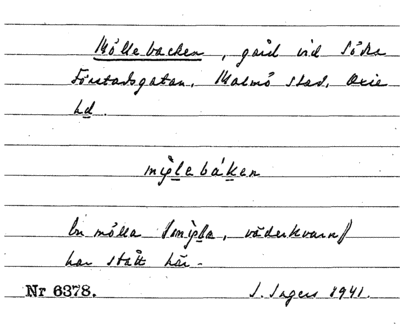 Möllebacken, gård vid Södra
Förstadsgatan, Malmö stad, Oxie
hd.
mÿlebáken
En mölla [mÿla, väderkvarn]
har stått här.
Nr 6378. I. Ingers 1941.